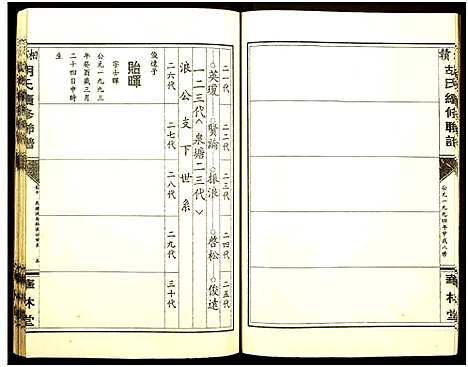 胡氏續修聯譜
公元一九九四年甲戌八修
華林堂
二一代 二二代 二三代 二四代 二五代
英瓊 賢論 振浪 啓松 俊遠
一二三代〈泉塘二三代〉
浪公支下世系
二六代 二七代 二八代 二九代 三十代
俊遠子
貽暉
字士暉
公元一九九三
年癸酉歲三月
二十四日申時
生
華林堂